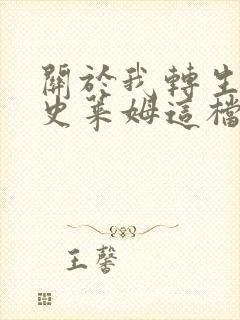 關於我轉生
史萊姆這檔
王馨